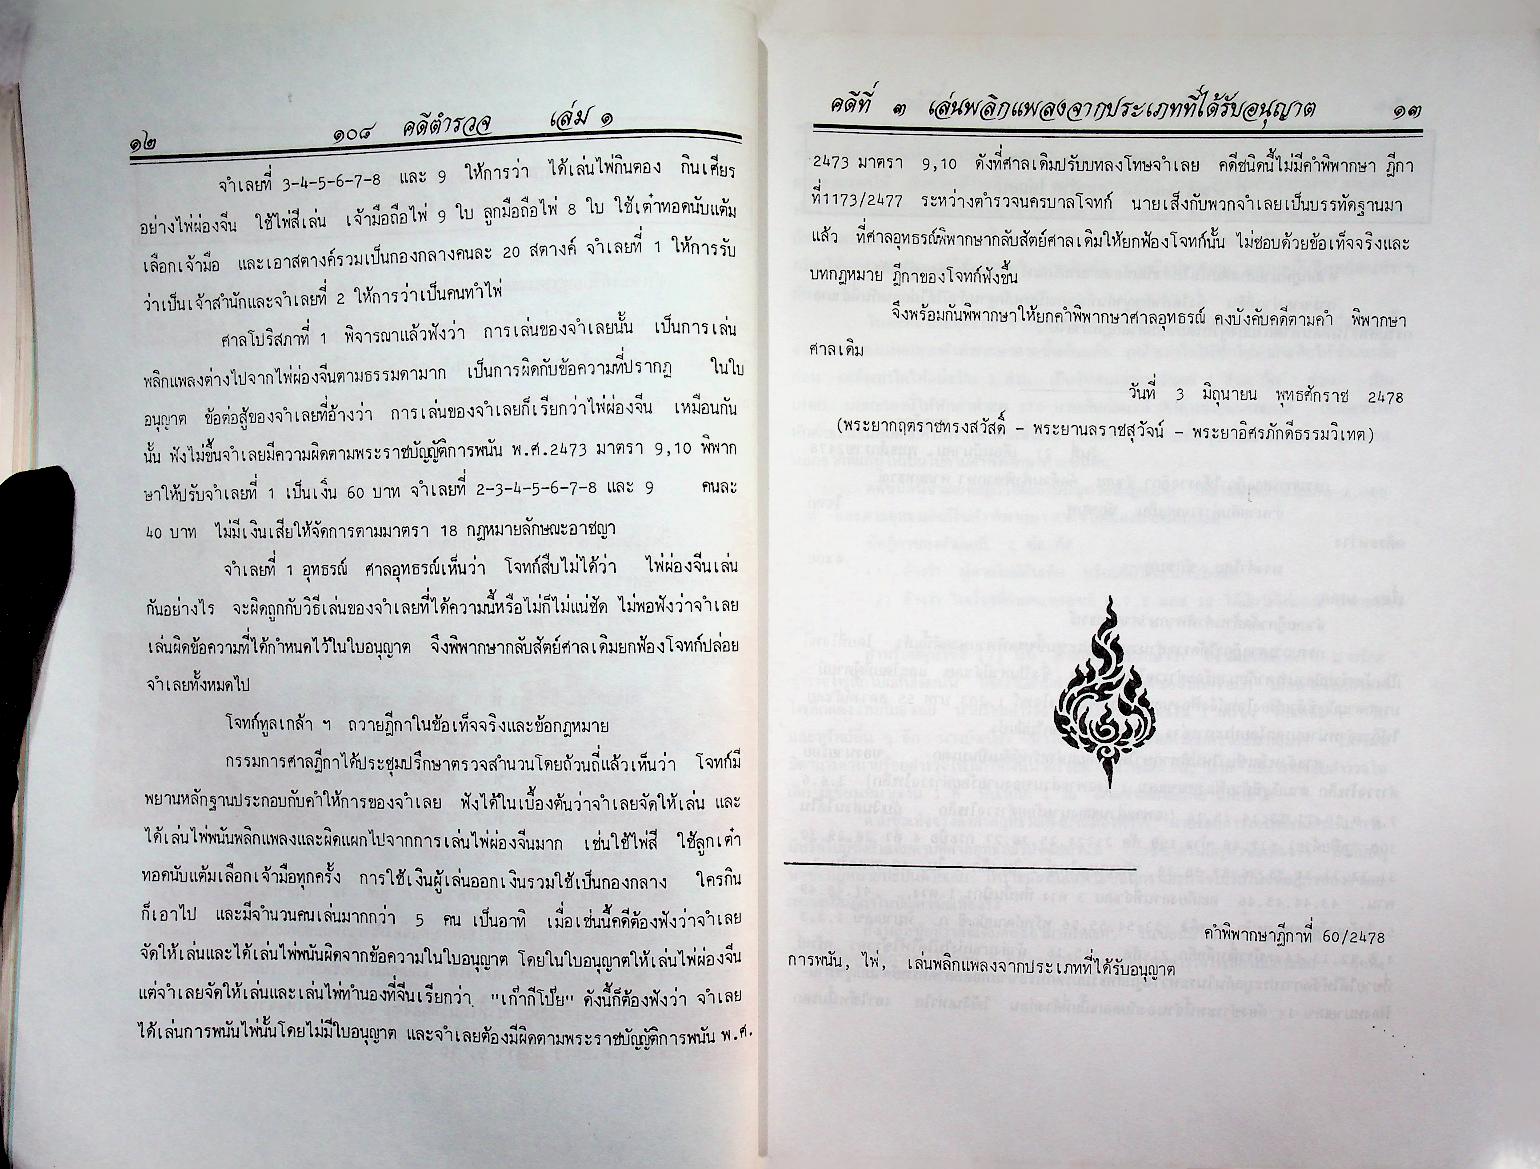 ๑๒ ๑๐๘ คดีตำรวจ เล่ม ๑
จำเลยที่ 3-4-5-6-7-8 และ 9 ให้การว่า ได้เล่นไพ่กินตอง กินเศียร
อย่างไพ่ผ่องจีน ใช้ไพ่สี่เล่น เจ้ามือถือไพ่ 9 ใบ ลูกมือถือไพ่ 8 ใบ ใช้เต๋าทอดนับแต้ม
เลือกเจ้ามือ และเอาสตางค์รวมเป็นกองกลางคนละ 20 สตางค์ จำเลยที่ 1 ให้การรับ
ว่าเป็นเจ้าสำนักและจำเลยที่ 2 ให้การว่าเป็นคนทำไพ่
ศาลโปริสภาที่ 1 พิจารณาแล้วฟังว่า การเล่นของจำเลยนั้น เป็นการเล่น
พลิกแพลงต่างไปจากไพ่ผ่องจีนตามธรรมดามาก เป็นการผิดกับข้อความที่ปรากฏ ในใบ
อนุญาต ข้อต่อสู้ของจำเลยที่อ้างว่า การเล่นของจำเลยก็เรียกว่าไพ่ผ่องจีน เหมือนกัน
นั้น ฟังไม่ขึ้นจำเลยมีความผิดตามพระราชบัญญัติการพนัน พ.ศ.2473 มาตรา 9,10 พิพาก
ษาให้ปรับจำเลยที่ 1 เป็นเงิน 60 บาท จำเลยที่ 2-3-4-5-6-7-8 และ 9 คนละ
40 บาท ไม่มีเงินเสียให้จัดการตามมาตรา 18 กฎหมายลักษณะอาชญา
จำเลยที่ 1 อุทธรณ์ ศาลอุทธรณ์เห็นว่า โจทก์สืบไม่ได้ว่า ไพ่ผ่องจีนเล่น
กันอย่างไร จะผิดถูกกับวิธีเล่นของจำเลยที่ได้ความนี้หรือไม่ก็ไม่แน่ชัด ไม่พอฟังว่าจำเลย
เล่นผิดข้อความที่ได้กำหนดไว้ในใบอนุญาต จึงพิพากษากลับสัตย์ศาลเดิมยกฟ้องโจทก์ปล่อย
จำเลยทั้งหมดไป
โจทก์ทูลเกล้า ฯ ถวายฎีกาในข้อเท็จจริงและข้อกฎหมาย
กรรมการศาลฎีกาได้ประชุมปรึกษาตรวจสำนวนโดยถ้วนถี่แล้วเห็นว่า โจทก์มี
พยานหลักฐานประกอบกับคำให้การของจำเลย ฟังได้ในเบื้องต้นว่าจำเลยจัดให้เล่น และ
ได้เล่นไพ่พนันพลิกแพลงและผิดแผกไปจากการเล่นไพ่ผ่องจีนมาก เช่นใช้ไพ่สี่ ใช้ลูกเต๋า
ทอดนับแต้มเลือกเจ้ามือทุกครั้ง การใช้เงินผู้เล่นออกเงินรวมใช้เป็นกองกลาง ใครกิน
ก็เอาไป และมีจำนวนคนเล่นมากกว่า 5 คน เป็นอาทิ เมื่อเช่นนี้คดีต้องฟังว่าจำเลย
จัดให้เล่นและได้เล่นไพ่พนันผิดจากข้อความในใบอนุญาต โดยในใบอนุญาตให้เล่นไพ่ผ่องจีน
แต่จำเลยจัดให้เล่นและเล่นไพ่ทำนองที่จีนเรียกว่า "เก๊ากีโป๊ย" ดังนี้ก็ต้องฟังว่า จำเลย
ได้เล่นการพนันไพ่นั้นโดยไม่มีใบอนุญาต และจำเลยต้องมีผิดตามพระราชบัญญัติการพนัน พ.ศ.
คดีที่ ๓ เล่นพลิกแพลงจากประเภทที่ได้รับอนุญาต ๑๓
2473 มาตรา 9,10 ดังที่ศาลเดิมปรับบทลงโทษจำเลย คดีชนิดนี้ไม่มีคำพิพากษา ฎีกา
ที่1173/2477 ระหว่างตำรวจนครบาลโจทก์ นายเส็งกับพวกจำเลยเป็นบรรทัดฐานมา
แล้ว ที่ศาลอุทธรณ์พิพากษากลับสัตย์ศาลเดิมให้ยกฟ้องโจทก์นั้น ไม่ชอบด้วยข้อเท็จจริงและ
บทกฎหมาย ฎีกาของโจทก์ฟังขึ้น
จึงพร้อมกันพิพากษาให้ยกคำพิพากษาศาลอุทธรณ์ คงบังคับคดีตามคำ พิพากษา
ศาลเดิม
วันที่ 3 มิถุนายน พุทธศักราช 2478
(พระยากฤตราชทรงสวัสดิ์ - พระยานลราชสุวัจน์ - พระยาอิศรภักดีธรรมวิเทต)
คำพิพากษาฎีกาที่ 60/2478
การพนัน, ไพ่, เล่นพลิกแพลงจากประเภทที่ได้รับอนุญาต